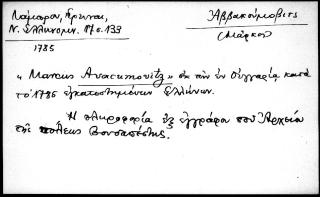 Λάμπρου, Σπυρ.,
Ν. Ελληνομν. 17 σ. 133
1785
Ἀββακούμοβιτς
(Μάρκος)
« Marcus Avacumovitz » ἐκ τῶν ἐν Οὐγγαρίᾳ κατὰ
τὸ 1785 ἐγκατεστημένων Ἑλλήνων.
Ἡ πληροφορία ἐξ ἐγγράφου τοῦ Ἀρχείου
τῆς πόλεως Βουδαπέστης.